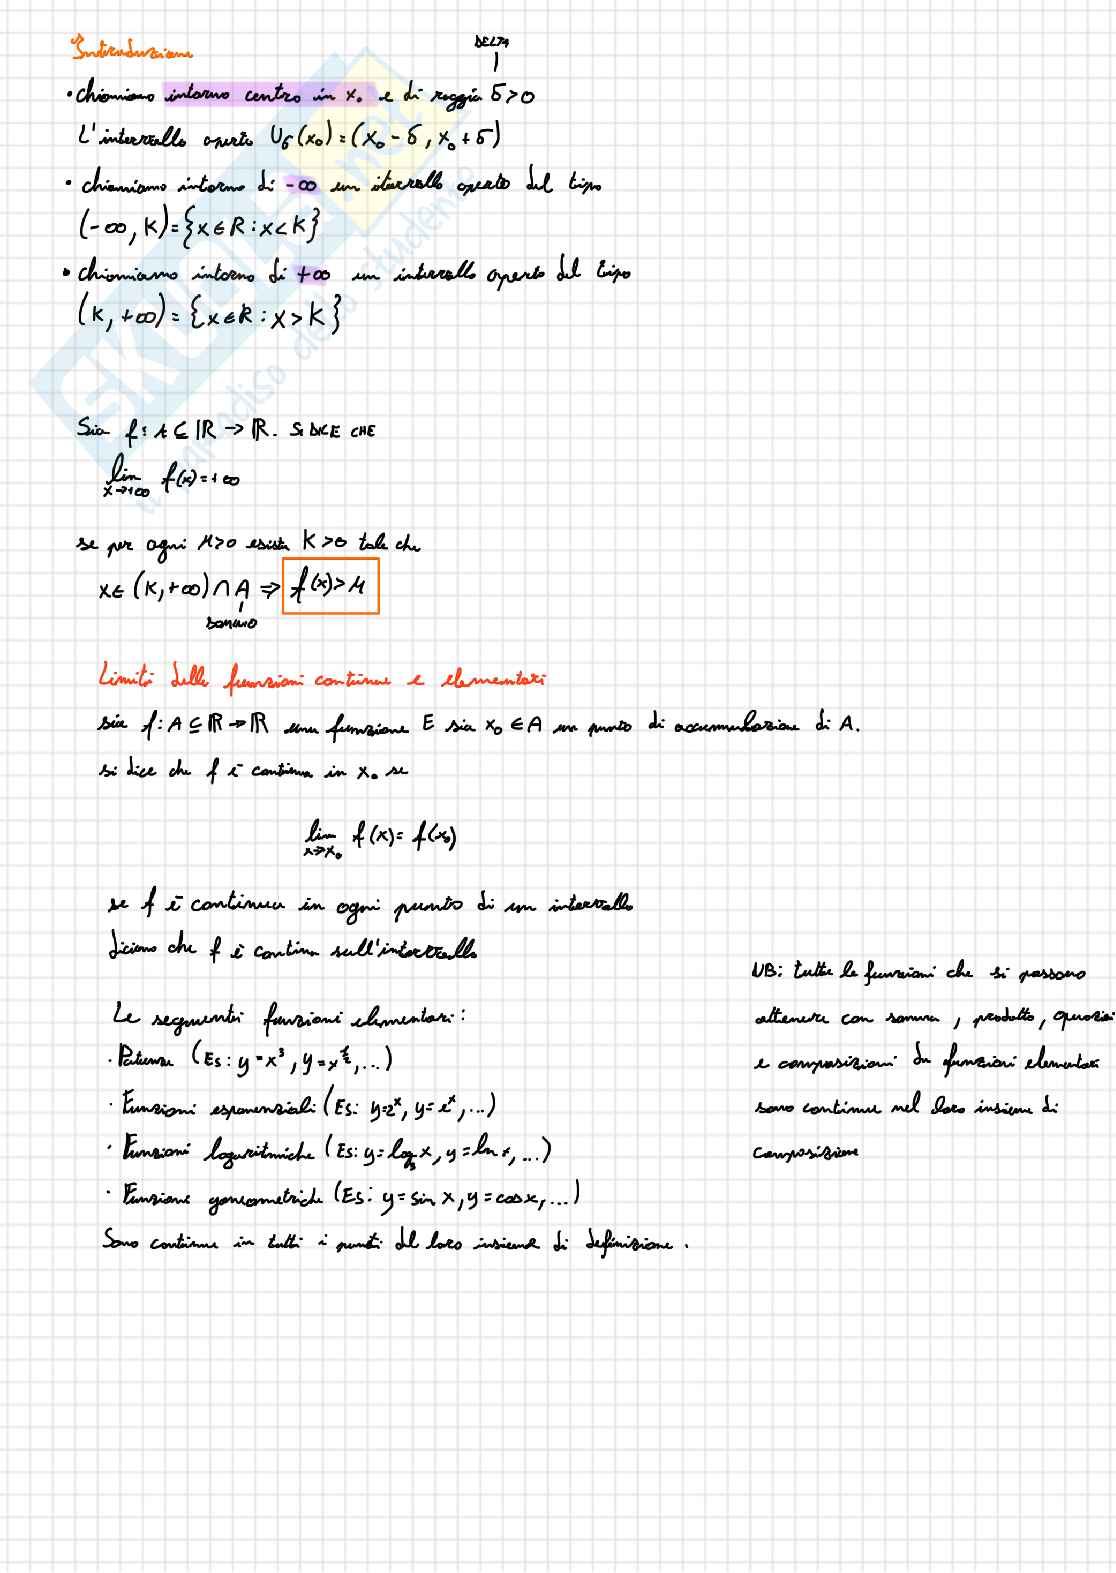 Introduzione
DELTA
• chiamiamo intorno centro in x₀ e di raggio δ>0
L'intervallo aperto U_δ(x₀)=(x₀-δ, x₀+δ)
• chiamiamo intorno di -∞ un itervallo aperto del tipo
(-∞, K)={x∈R:x<K}
• chiamiamo intorno di +∞ un intervallo aperto del tipo
(K, +∞)={x∈R:x>K}
Sia f: A⊆ℝ→ℝ. SI DICE CHE
lim x→+∞ f(x)=+∞
se per ogni M>0 esista K>0 tale che
x∈(K,+∞)∩A ⇒ f(x)>M
DOMINIO
Limiti delle funzioni continue e elementari
sia f:A⊆ℝ→ℝ una funzione E sia x₀∈A un punto di accumulazione di A.
si dice che f è continua in x₀ se
lim x→x₀ f(x)=f(x₀)
se f è continua in ogni punto di un intervallo
diciamo che f è continua sull'intervallo
Le seguenti funzioni elementari:
· Potenze (Es: y=x³, y=x^½,...)
· Funzioni esponenziali (Es: y=2ˣ, y=eˣ,...)
· Funzioni logaritmiche (Es: y=log₃x, y=ln x,...)
· Funzione goneometriche (Es: y=sin x, y=cosx,...)
Sono continue in tutti i punti del loro insieme di definizione.
NB: tutte le funzioni che si possono
ottenere con somma, prodotto, quozien
e composizioni di funzioni elementari
sono continue nel loro insieme di
composizione
SKUOLA.net
il paradiso dello studente